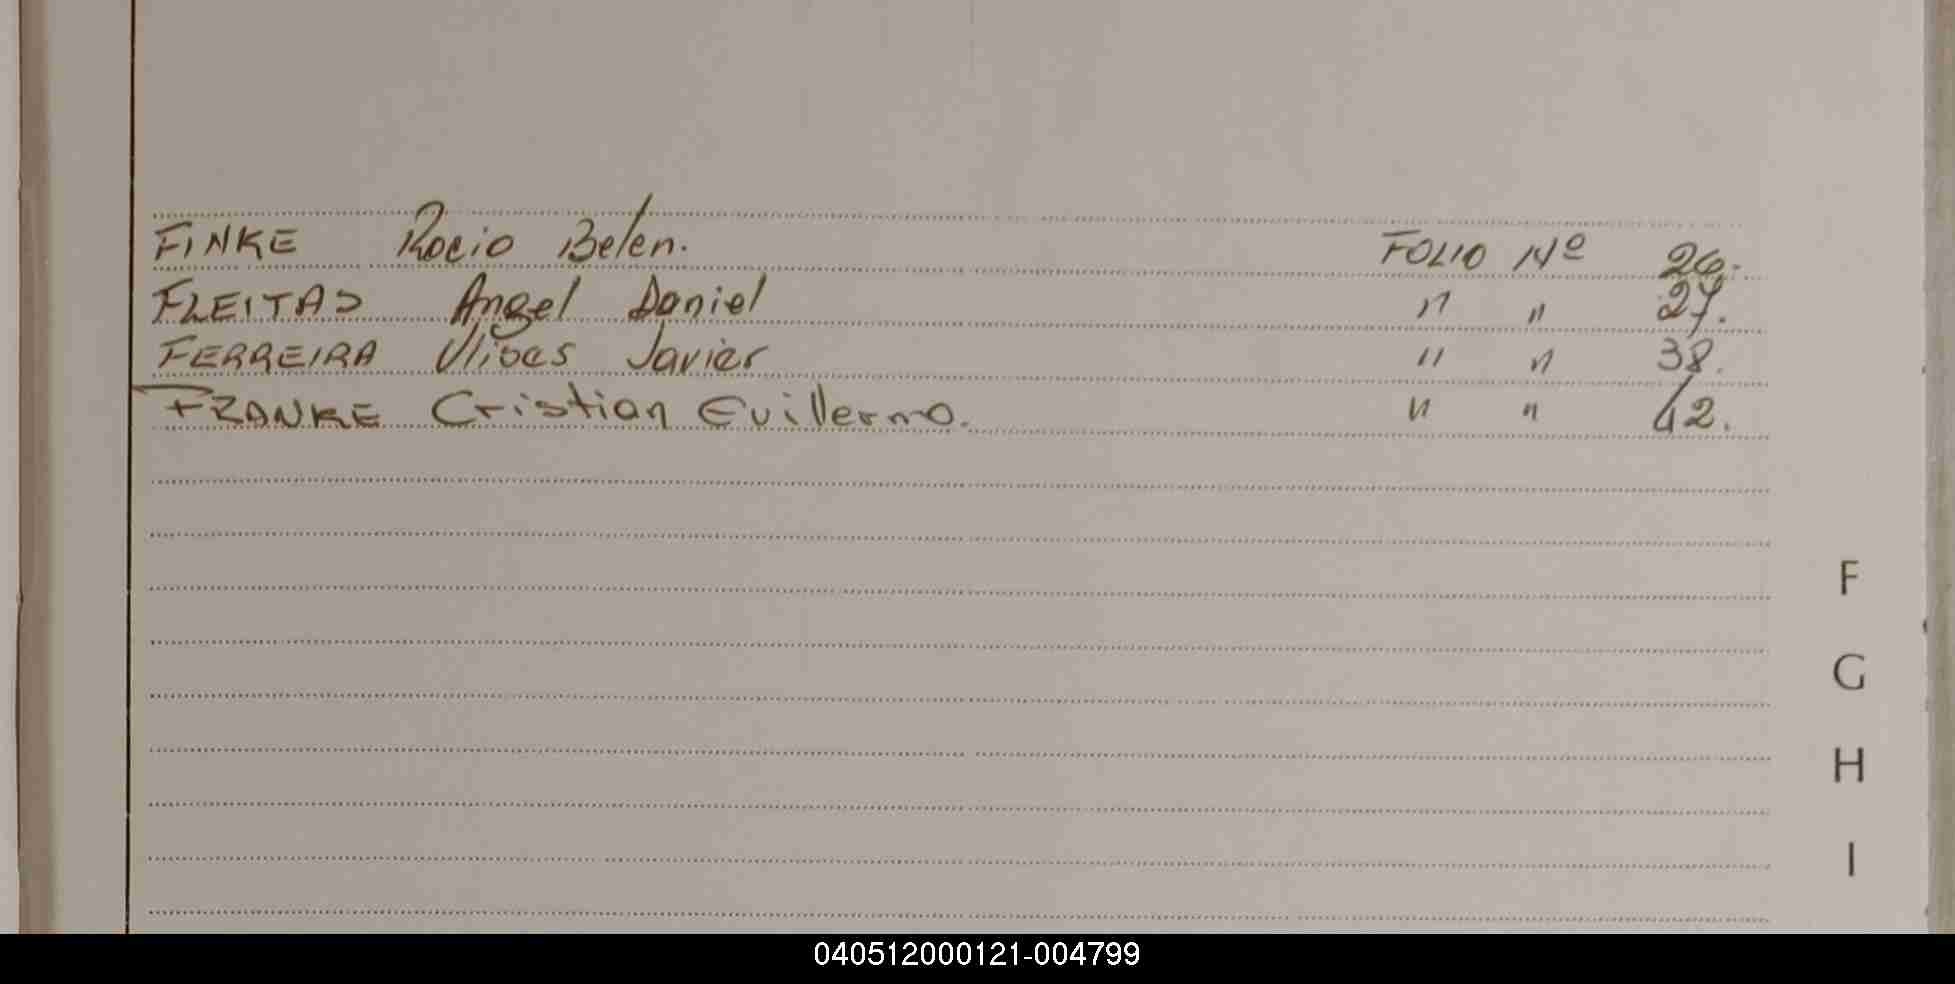 FINKE Rocio Belen. FOLIO Nº 20.
FLEITAS Angel Daniel " " 27.
FERREIRA Ulises Javier " " 38.
FRANKE Cristian Guillermo. " " 42.
F
G
H
I
040512000121-004799